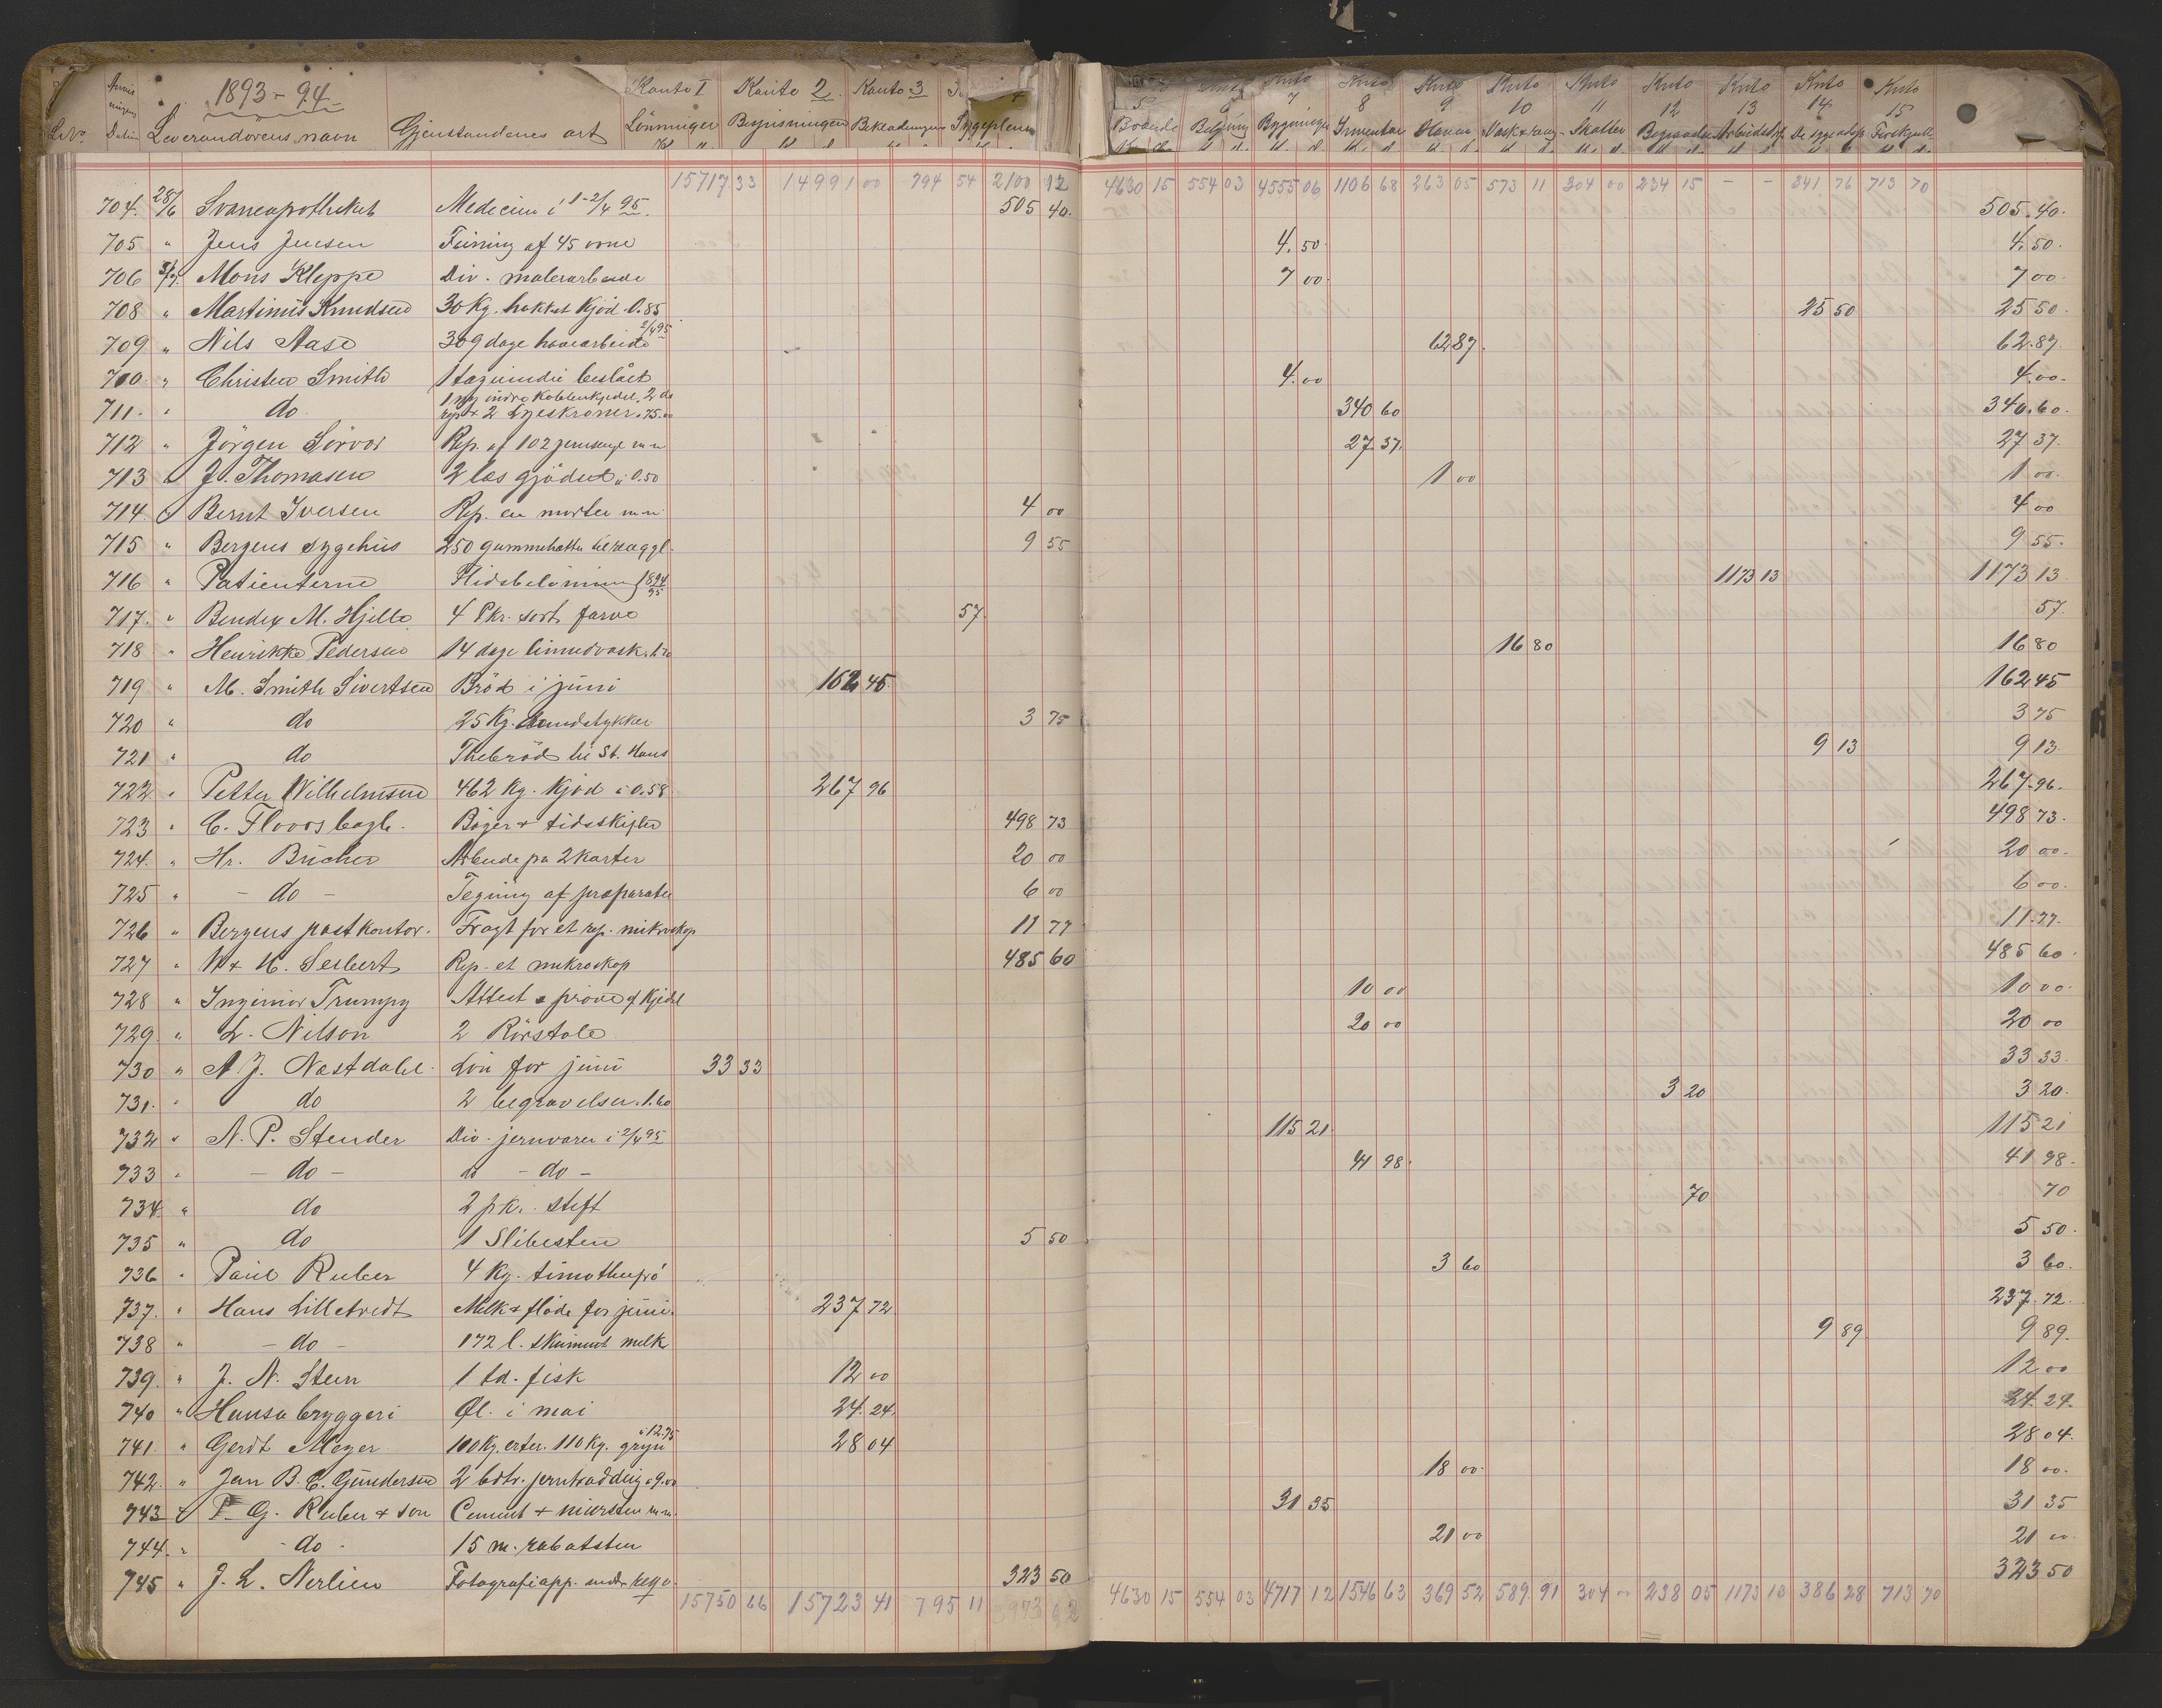 1893-94
L. No. Datum Leverandørens navn Gjenstandenes art Konto 1 Lönninger Konto 2 Bespisningen Konto 3 Beklædningen Sygeplein Konto 5 Konto 6 Konto 7 Bygninger Konto 8 Inventar Konto 9 Haven Konto 10 Konto 11 Skatter Konto 12 Konto 13 Konto 14 Konto 15
15717 33 14991 00 794 54 2100 12 4630 15 554 03 4555 06 1106 68 263 05 573 11 304 00 234 15 - - 341 76 713 70
704. 28/6 Svaneapotheket Medicin i 1-2/4 95. 505 40. 505.40.
705 " Jens Jensen Feining af 45 ovne 4.50. 4.50.
706 Mons Kleppe Div. malerarbeide 7 00. 7 00.
708 " Martinus Knudsen 30 Kg. hakket Kjød. 0.85 25 50 25 50.
709 " Nils Aase 309 dage havearbeide 2/4 95 62 87. 62.87.
700. " Christen Smith 1 tagrende beslået 4.00 4.00.
711. " do. 1 ny indre Kobberkjedel. 2 do rep + 2 Lyseskroner. 75.00 340 60 340.60.
712 " Jörgen Sörvor Rep. af 102 jernsenge m.m. 27.37. 27 37.
713 " J. Thomasen 2 læs gjödsel à 0.50 1 00 1 00.
714. " Bernt Iversen Rep. en morter m.m. 4 00 4 00
715 " Bergens sygehus 250 gummihatte 9 55 9 55.
716 " Patienterne Flidsbelönning 1894/95 1173 13 1173 13
717. " Bendix M. Hjelle 4 Pkr. sort farve 57. 57.
718 " Henrikke Pedersen 14 dage linnedvask. 16 80 16 80
719 " M. Smith Sivertsen Bröd i juni 162 45. 162 45
720 " do 25 Kg. Smudstykker 3 75 3 75
721 " do Thebröd til St. Hans 9 13 9 13.
722 " Petter Wilhelmsen 462 Kg. Kjød à 0.58 267 96 267.96.
723 " C. Floors bogh. Böger + tidsskifter 498 73 498 73.
724. " Hr. Bücher Arbeide pa 2 karter 20 00 20 00.
725 " - do - Tegning af præparater 6 00 6 00.
726 " Bergens postkontor. Fragt for et rep. mikroskop 11 77 11.77.
727 " W + H. Seibert Rep. et mikroskop 485 60 485 60.
728 " Ingeniør Trumpy Attest + pröve af kjedel 10 00 10 00.
729. " L. Nilson 2 Rörstole 20 00 20 00
730 " A J. Næstdahl Lön for juni 33 33 33 33.
731. " do 2 begravelser. 1.60 3 20 3 20.
732 " N. P. Stender Div. jernvarer i 2/4 95 115 21. 115 21
733 " - do - do - do - 41 98. 41 98.
734. " do 2 pk. stift 70 70
735 " do 1 Slibesten 5 50 5 50.
736 " Paul Rieber 4 Kg. timotheifrö 3 60 3 60.
737. " Hans Lilletvedt Melk + flöde for juni. 237 72 237.72.
738 " - do - 172 l. skummet melk 9 89. 9 89.
739. " J. N. Stein 1 td. fisk 12 00 12 00
740 " Hansa bryggeri Øl. i mai 24.24. 24.24.
741. " Gerdt Meyer 100 Kg. erter. 110 Kg. gryn à 12.75 28 04 28 04.
742. " Jan B. C. Gundersen 2 bdt. jerntraad 9.00 18 00. 18 00.
743 " P. G. Rieber + son Cement + mursten m.m. 31 35 31 35
744. " - do - 15 m. rabatsten 21 00 21 00
745 " J. L. Nerlien Fotografiapp. 323 50 323 50
15750 66 15723 41 795 11 3973 62 4630 15 554 03 4717 12 1546 63 369 52 589.91 304 00 238 05 1173 13 386 28 713 70